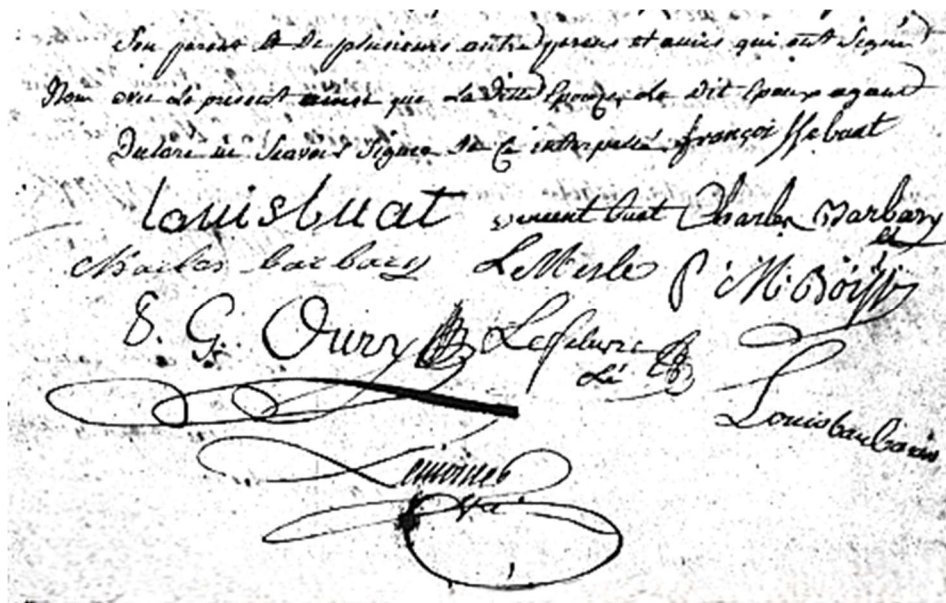 Son parent et de plusieurs autre parens et amis qui ont Signé
Nous avec Le present ainsi que La ditte Epouze, Le dit Epoux ayant
Declaré ne Scavoir Signer de ce interpellé. françois
Louis buat vincent buat Charles Barbary
Charles barbary LeMesle P M. Boissy
G. Oury Lefebvre
Louis barbarie
Lemoine